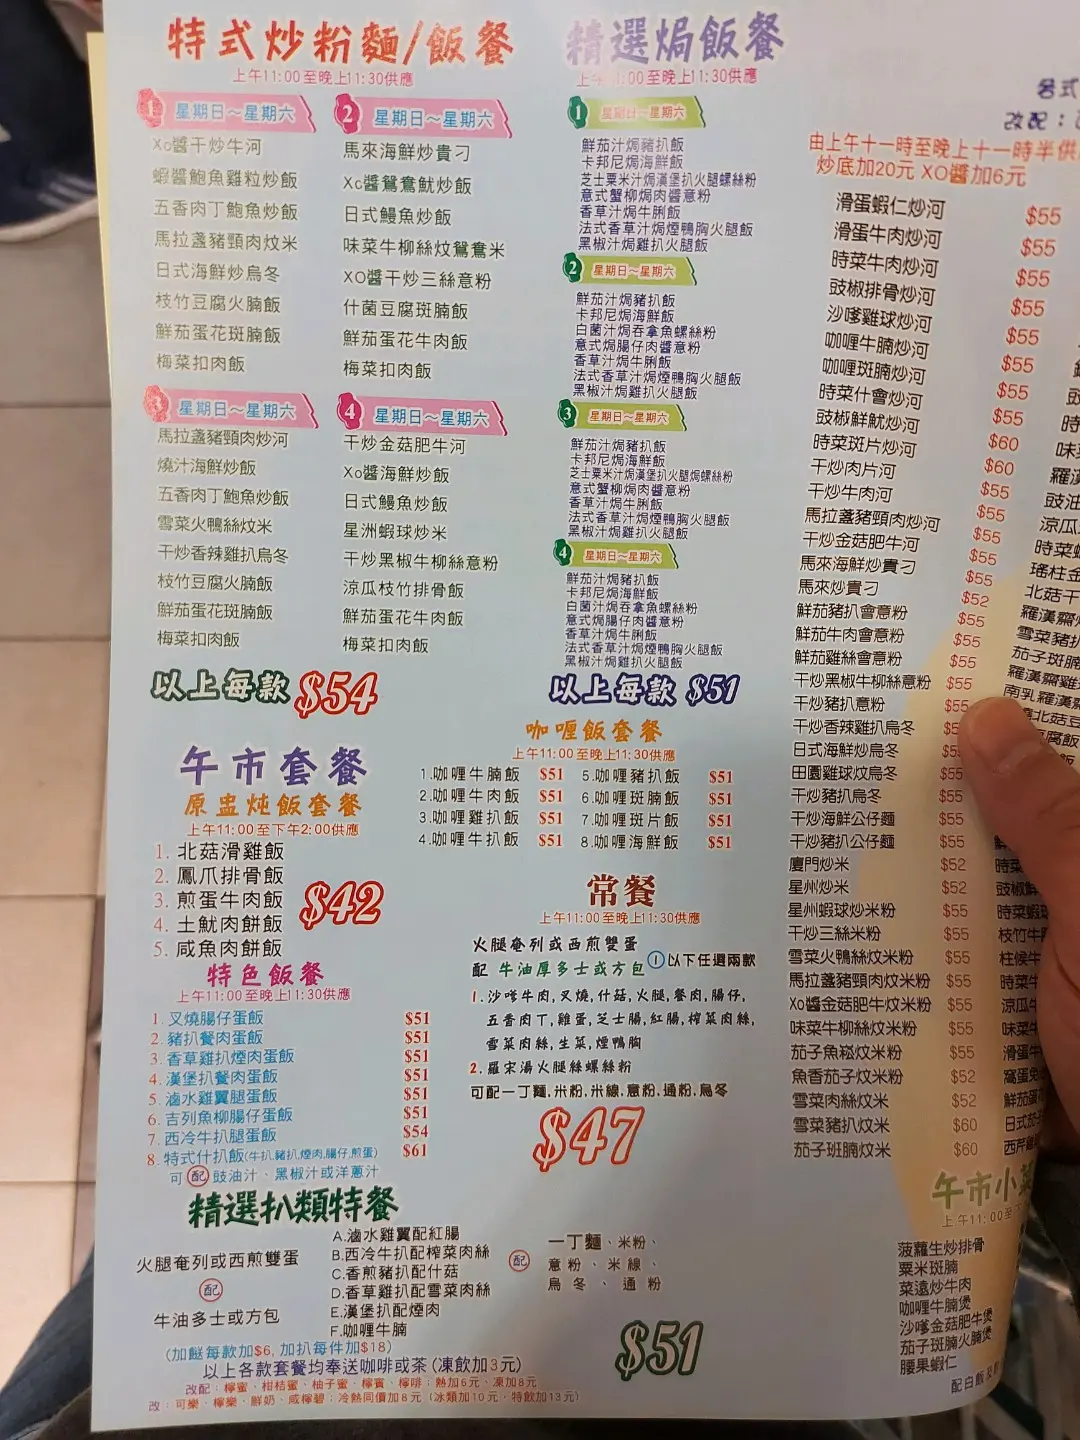 特式炒粉麵/飯餐
上午11:00至晚上11:30供應
1 星期日～星期六
Xo醬干炒牛河
蝦醬鮑魚雞粒炒飯
五香肉丁鮑魚炒飯
馬拉盞豬頸肉炆米
日式海鮮炒烏冬
枝竹豆腐火腩飯
鮮茄蛋花斑腩飯
梅菜扣肉飯
2 星期日～星期六
馬來海鮮炒貴刁
Xo醬鴛鴦魷炒飯
日式鰻魚炒飯
味菜牛柳絲炆鴛鴦米
XO醬干炒三絲意粉
什菌豆腐斑腩飯
鮮茄蛋花牛肉飯
梅菜扣肉飯
3 星期日～星期六
馬拉盞豬頸肉炒河
燒汁海鮮炒飯
五香肉丁鮑魚炒飯
雪菜火鴨絲炆米
干炒香辣雞扒烏冬
枝竹豆腐火腩飯
鮮茄蛋花斑腩飯
梅菜扣肉飯
4 星期日～星期六
干炒金菇肥牛河
Xo醬海鮮炒飯
日式鰻魚炒飯
星洲蝦球炒米
干炒黑椒牛柳絲意粉
涼瓜枝竹排骨飯
鮮茄蛋花牛肉飯
梅菜扣肉飯
以上每款 $54
精選焗飯餐
上午11:00至晚上11:30供應
1 星期日～星期六
鮮茄汁焗豬扒飯
卡邦尼焗海鮮飯
芝士粟米汁焗漢堡扒火腿螺絲粉
意式蟹柳焗肉醬意粉
香草汁焗牛脷飯
法式香草汁焗煙鴨胸火腿飯
黑椒汁焗雞扒火腿飯
2 星期日～星期六
鮮茄汁焗豬扒飯
卡邦尼焗海鮮飯
白菌汁焗吞拿魚螺絲粉
意式焗腸仔肉醬意粉
香草汁焗牛脷飯
法式香草汁焗煙鴨胸火腿飯
黑椒汁焗雞扒火腿飯
3 星期日～星期六
鮮茄汁焗豬扒飯
卡邦尼焗海鮮飯
芝士粟米汁焗漢堡扒火腿焗螺絲粉
意式蟹柳焗肉醬意粉
香草汁焗牛脷飯
法式香草汁焗煙鴨胸火腿飯
黑椒汁焗雞扒火腿飯
4 星期日～星期六
鮮茄汁焗豬扒飯
卡邦尼焗海鮮飯
白菌汁焗吞拿魚螺絲粉
意式焗腸仔肉醬意粉
香草汁焗牛脷飯
法式香草汁焗煙鴨胸火腿飯
黑椒汁焗雞扒火腿飯
以上每款 $51
午市套餐
原盅炖飯套餐
上午11:00至下午2:00供應
1. 北菇滑雞飯
2. 鳳爪排骨飯
3. 煎蛋牛肉飯
4. 土魷肉餅飯
5. 咸魚肉餅飯
$42
咖喱飯套餐
上午11:00至晚上11:30供應
1.咖喱牛腩飯 $51
2.咖喱牛肉飯 $51
3.咖喱雞扒飯 $51
4.咖喱牛扒飯 $51
5.咖喱豬扒飯 $51
6.咖喱斑腩飯 $51
7.咖喱斑片飯 $51
8.咖喱海鮮飯 $51
特色飯餐
上午11:00至晚上11:30供應
1. 叉燒腸仔蛋飯 $51
2. 豬扒餐肉蛋飯 $51
3. 香草雞扒煙肉蛋飯 $51
4. 漢堡扒餐肉蛋飯 $51
5. 滷水雞翼腿蛋飯 $51
6. 吉列魚柳腸仔蛋飯 $51
7. 西冷牛扒腿蛋飯 $54
8. 特式什扒飯(牛扒,豬扒,煙肉,腸仔,煎蛋) $61
可配 豉油汁、黑椒汁或洋蔥汁
常餐
上午11:00至晚上11:30供應
火腿奄列或西煎雙蛋
配 牛油厚多士或方包 ① 以下任選兩款
1. 沙嗲牛肉,叉燒,什菇,火腿,餐肉,腸仔,
五香肉丁,雞蛋,芝士腸,紅腸,榨菜肉絲,
雪菜肉絲,生菜,煙鴨胸
2. 羅宋湯火腿絲螺絲粉
可配一丁麵,米粉,米線,意粉,通粉,烏冬
$47
精選扒類特餐
火腿奄列或西煎雙蛋
配
牛油多士或方包
A.滷水雞翼配紅腸
B.西冷牛扒配榨菜肉絲
C.香煎豬扒配什菇
D.香草雞扒配雪菜肉絲
E.漢堡扒配煙肉
F.咖喱牛腩
配
一丁麵、米粉、
意粉、米線、
烏冬、通粉
$51
(加餸每款加$6, 加扒每件加$18)
以上各款套餐均奉送咖啡或茶 (凍飲加3元)
改配：檸蜜、柑桔蜜、柚子蜜、檸賓、檸啡：熱加6元、凍加8元
改：可樂、檸樂、鮮奶、咸檸碧：冷熱同價加8元 (冰類加10元、特飲加13元)
各式
改配：
由上午十一時至晚上十一時半供
炒底加20元 XO醬加6元
滑蛋蝦仁炒河 $55
滑蛋牛肉炒河 $55
時菜牛肉炒河 $55
豉椒排骨炒河 $55
沙嗲雞球炒河 $55
咖喱牛腩炒河 $55
咖喱斑腩炒河 $55
時菜什會炒河 $55
豉椒鮮魷炒河 $60
時菜斑片炒河 $60
干炒肉片河 $55
干炒牛肉河 $55
馬拉盞豬頸肉炒河 $55
干炒金菇肥牛河 $55
馬來海鮮炒貴刁 $55
馬來炒貴刁 $52
鮮茄豬扒會意粉 $55
鮮茄牛肉會意粉 $55
鮮茄雞絲會意粉 $55
干炒黑椒牛柳絲意粉 $55
干炒豬扒意粉 $55
干炒香辣雞扒烏冬
日式海鮮炒烏冬
田園雞球炆烏冬 $55
干炒豬扒烏冬 $55
干炒海鮮公仔麵 $55
干炒豬扒公仔麵 $55
廈門炒米 $52
星州炒米 $52
星州蝦球炒米粉 $55
干炒三絲米粉 $55
雪菜火鴨絲炆米粉 $55
馬拉盞豬頸肉炆米粉 $55
Xo醬金菇肥牛炆米粉 $55
味菜牛柳絲炆米粉 $55
茄子魚崧炆米粉 $55
魚香茄子炆米粉 $52
雪菜肉絲炆米 $52
雪菜豬扒炆米 $60
茄子斑腩炆米 $60
午市小菜
上午11:00至
菠蘿生炒排骨
粟米斑腩
菜遠炒牛肉
咖喱牛腩煲
沙嗲金菇肥牛煲
茄子斑腩火腩煲
腰果蝦仁
配白飯及